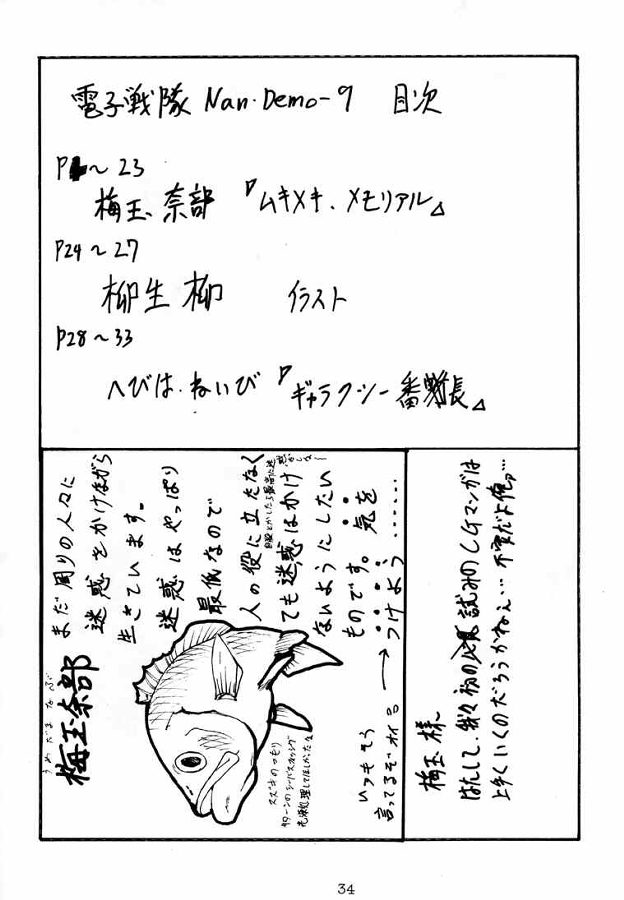 電子戦隊 Nan・Demo-9 目次
P■〜23
梅玉奈部 『ムキメキ・メモリアル』
P24〜27
柳生柳 イラスト
P28〜33
へびは・ねいび 『ギャラクシー番長』
梅玉様
はたして、我々初の試みのCGマンガは
上手くいくのだろうかねぇ…不安だよ俺ァ…
まだ周りの人々に
迷惑をかけながら
生きています。
迷惑はやっぱり
最低なので
人の役に立たなく
ても迷惑はかけ
ないようにしたい
ものです。気を
つけよう……
→いつもそう
言ってるぞオイ
うめだまなぶ
梅玉奈部
スズキのつもり
34